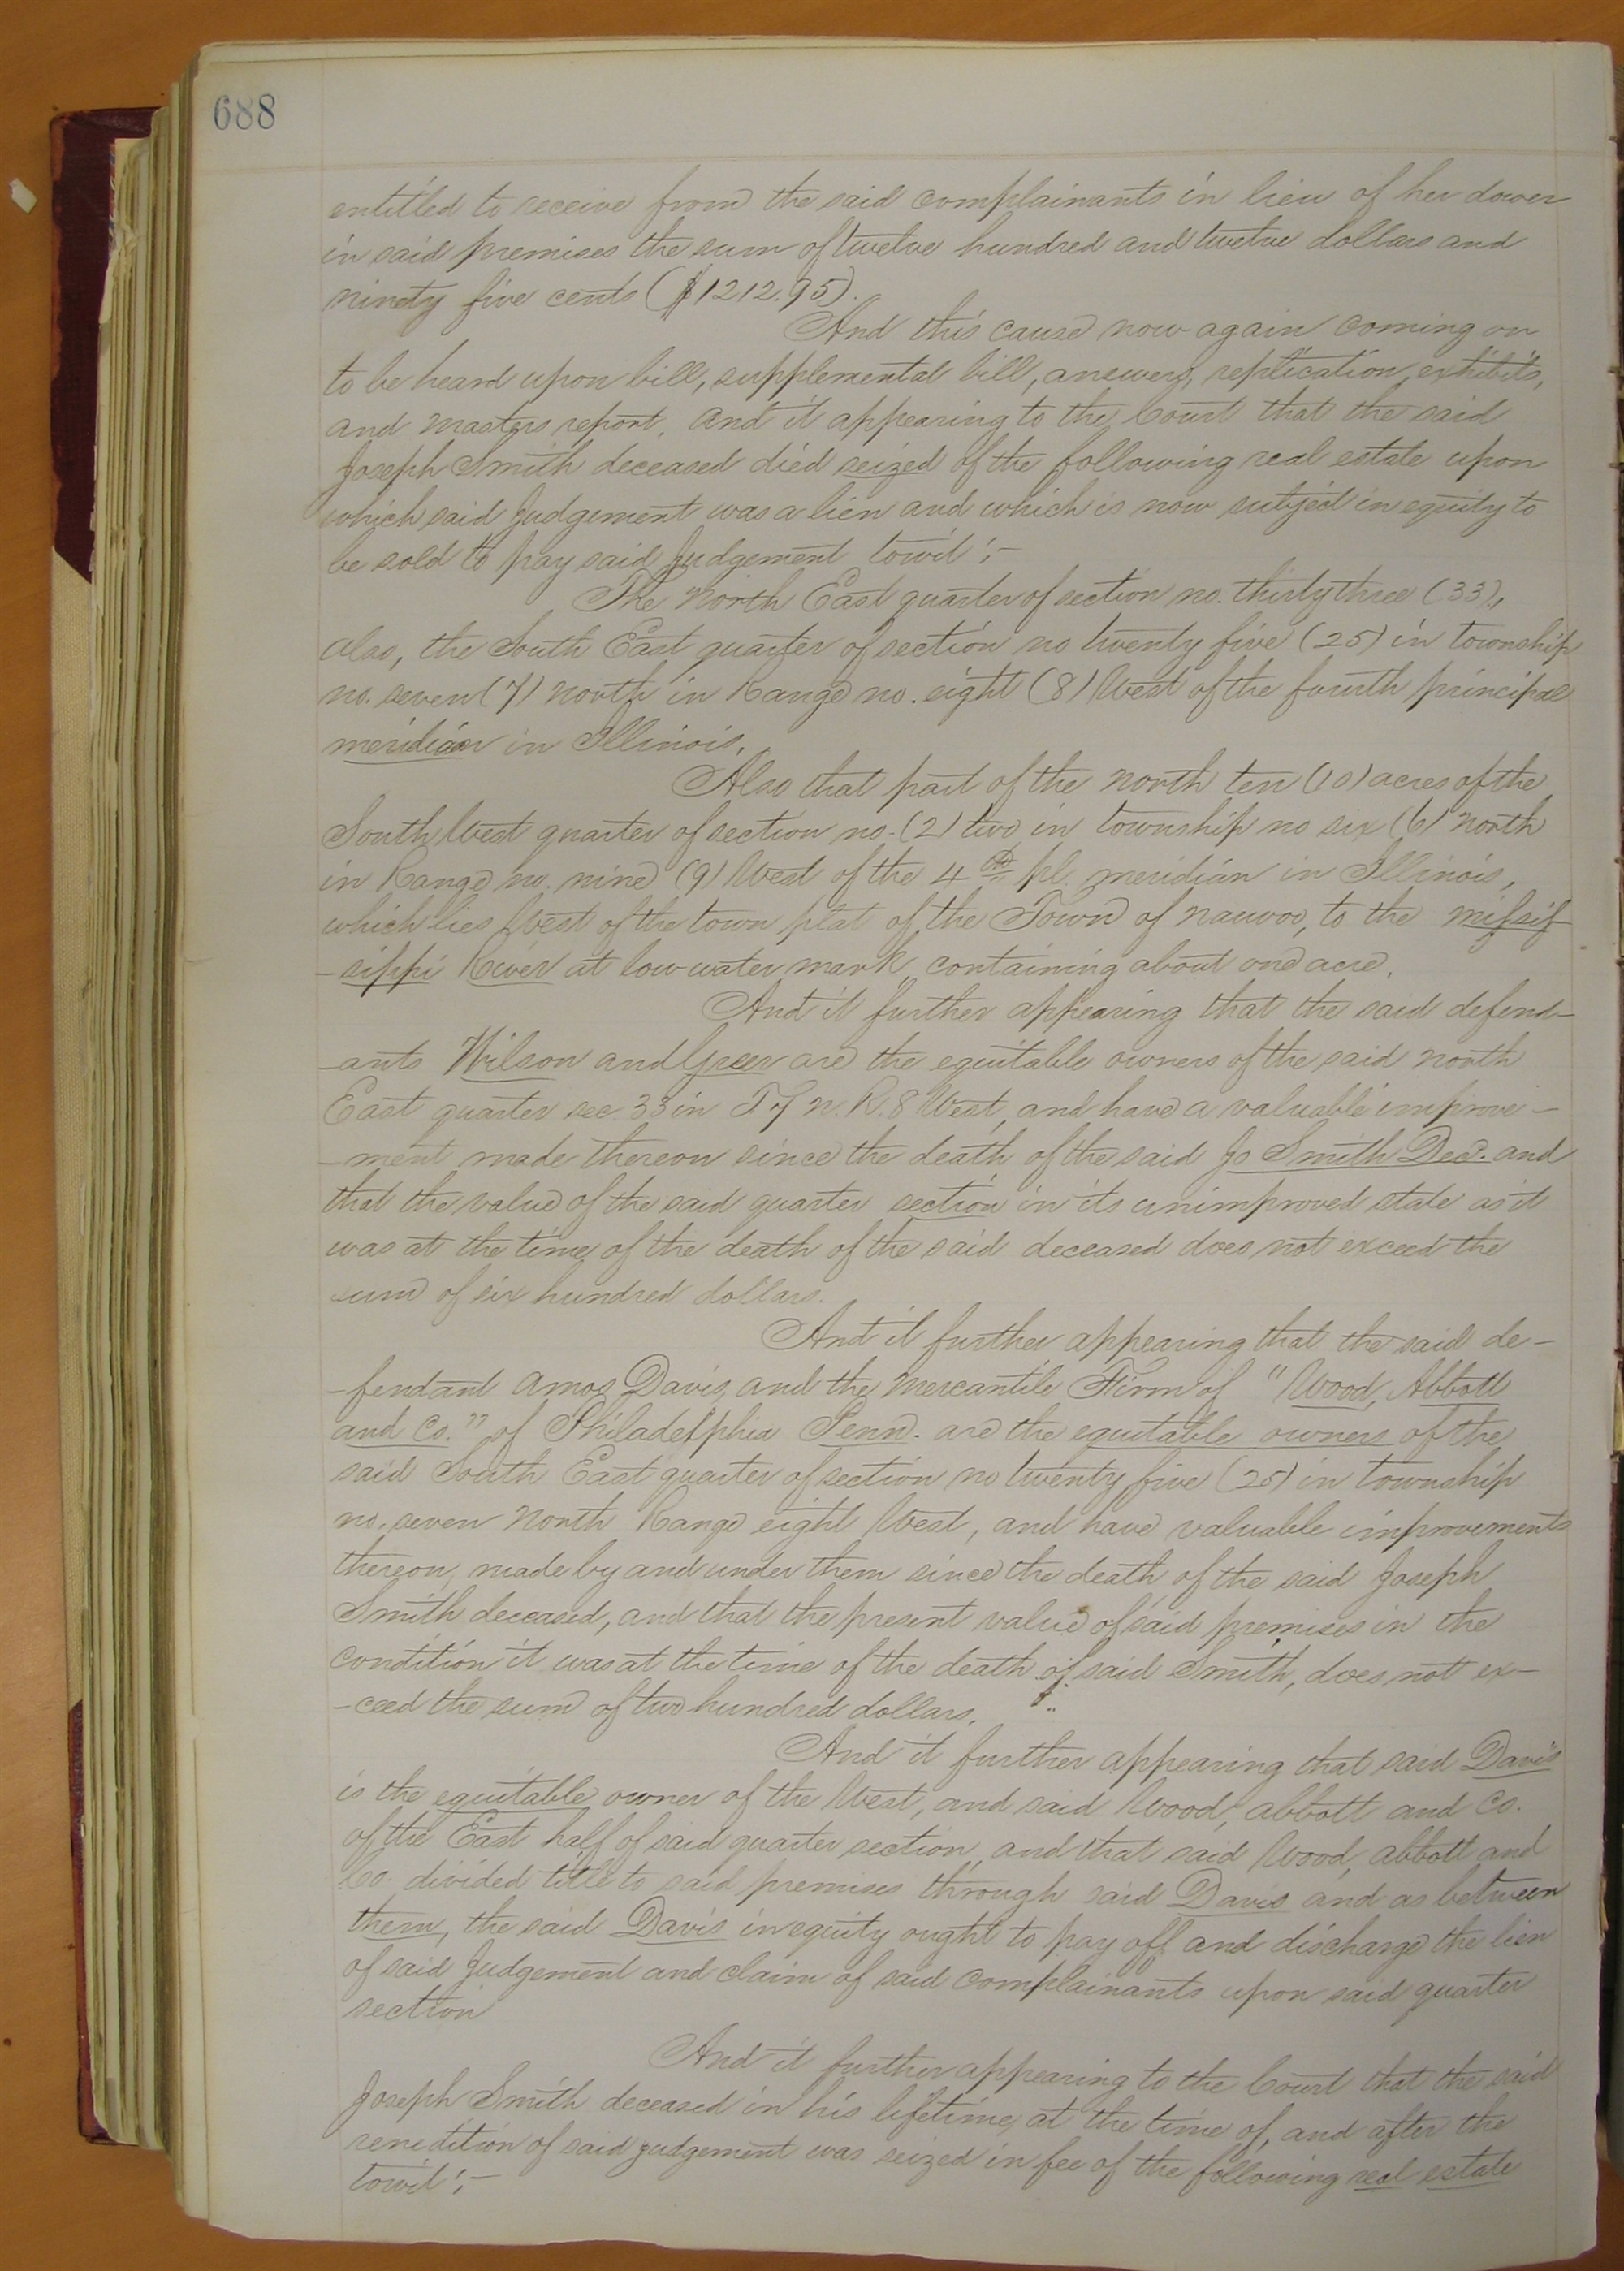 688
entitled to receive from the said complainants in lieu of her dower
in said premises the sum of twelve hundred and twelve dollars and
ninety five cents ($1212.95).
And this cause now again coming on
to be heard upon bill, supplemental bill, answers, replication, exhibits,
and masters report. and it appearing to the Court that the said
Joseph Smith deceased died seized of the following real estate upon
which said Judgement was a lien and which is now subject in equity to
be sold to pay said Judgement towit:-
The North East quarter of section no. thirty three (33),
also, the South East quarter of section no twenty five (25) in township
no. seven (7) north in Range no. eight (8) West of the fourth principal
meridian in Illinois.
Also that part of the north ten (10) acres of the
South West quarter of section no. (2) two in township no six (6) north
in Range no. nine (9) West of the 4th pl. meridian in Illinois,
which lies West of the town plat of the Town of nauvoo, to the missis
-sippi River at low water mark containing about one acre.
And it further appearing that the said defend-
-ants Wilson and Greer are the equitable owners of the said north
East quarter sec. 33 in T 7 N. R. 8 West, and have a valuable improve-
-ment made thereon since the death of the said Jo Smith Decd. and
that the value of the said quarter section in its unimproved state as it
was at the time of the death of the said deceased does not exceed the
sum of six hundred dollars.
And it further appearing that the said de-
-fendant Amos Davis, and the Mercantile Firm of "Wood, Abbott
and Co." of Philadelphia Penn. are the equitable owners of the
said South East quarter of section no twenty five (25) in township
no. seven North Range eight West, and have valuable improvements
thereon, made by and under them since the death of the said Joseph
Smith deceased, and that the present value of said premises in the
condition it was at the time of the death of said Smith, does not ex-
-ceed the sum of two hundred dollars.
And it further appearing that said Davis
is the equitable owner of the West, and said Wood, abbott and Co.
of the East half of said quarter section, and that said Wood, abbott and
Co. divided title to said premises through said Davis and as between
them, the said Davis in equity ought to pay off and discharge the lien
of said Judgement and claim of said complainants upon said quarter
section
And it further appearing to the Court that the said
Joseph Smith deceased in his lifetime, at the time of, and after the
renedition of said judgement was seized in fee of the following real estate
towit:-